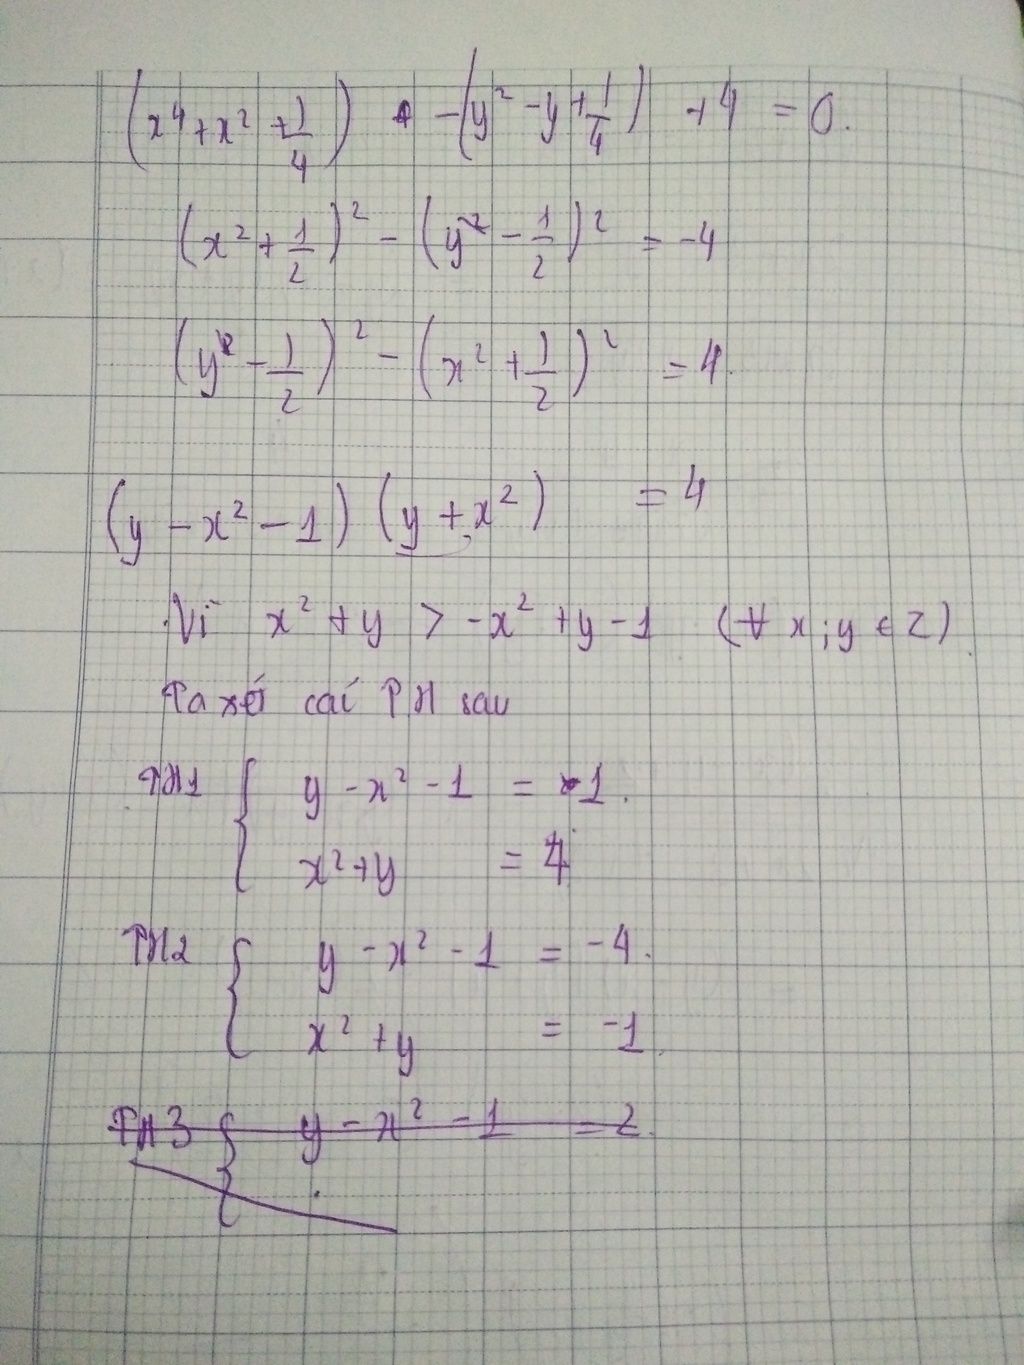 (x⁴ + x² + 1/4) - (y² - y + 1/4) + 4 = 0.
(x² + 1/2)² - (y - 1/2)² = -4
(y - 1/2)² - (x² + 1/2)² = 4.
(y - x² - 1) (y + x²) = 4
Vì x² + y > -x² + y - 1 (∀ x; y ∈ Z).
Ta xét các TH sau
TH1 { y - x² - 1 = 1.
x² + y = 4
TH2 { y - x² - 1 = -4.
x² + y = -1.
TH3 { y - x² - 1 = 2.